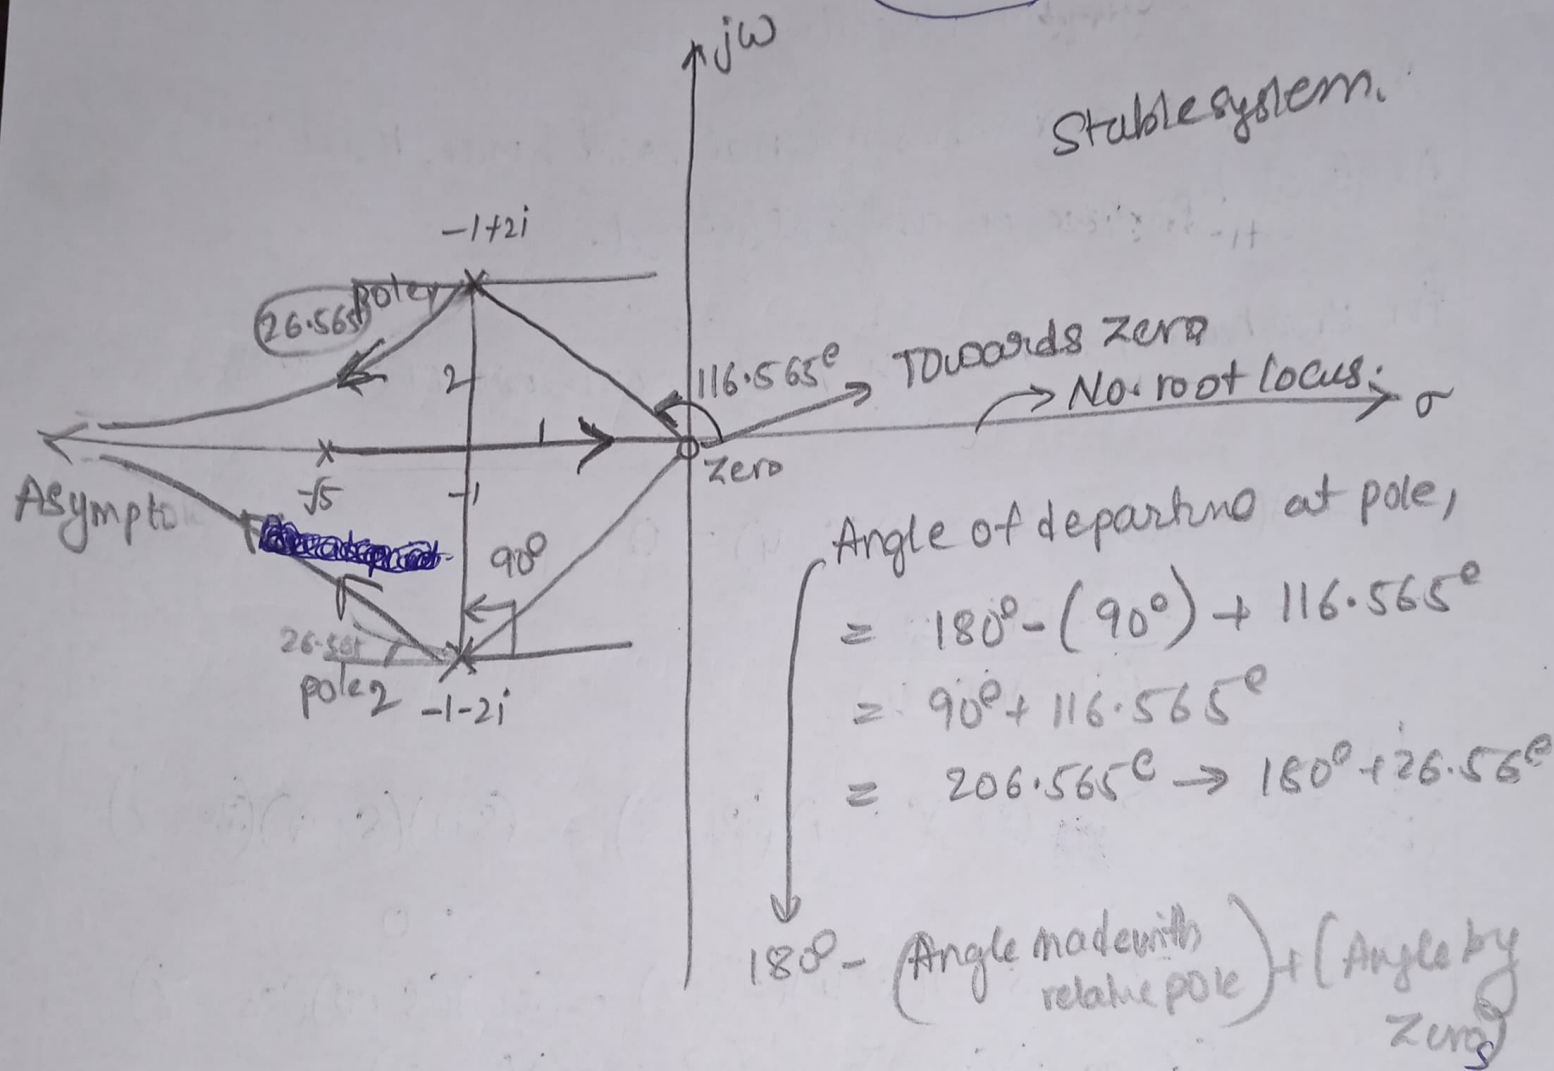 jω
Stable system.
-1+2i
pole1
26.565
2
116.565°
Towards zero
No root locus.
σ
1
zero
-√5
-1
Asympto
90°
26.565
pole2
-1-2i
Angle of departure at pole,
= 180° - (90°) + 116.565°
= 90° + 116.565°
= 206.565° → 180° + 26.56°
180° - (Angle made with relative pole) + (Angle by zeros)